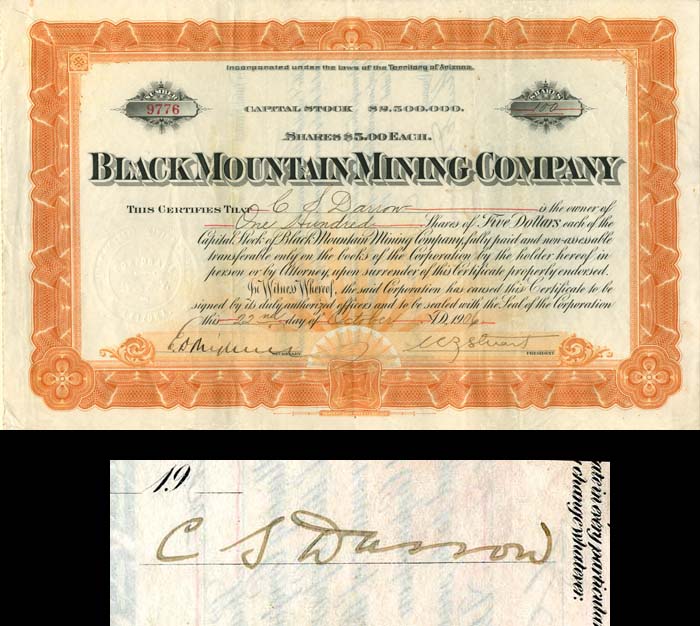 Incorporated under the laws of the Territory of Arizona.
NUMBER
9776
SHARES
100
CAPITAL STOCK $2,500,000.
SHARES $5.00 EACH.
BLACK MOUNTAIN MINING COMPANY
THIS CERTIFIES THAT C S Darrow is the owner of
One Hundred Shares of Five Dollars each of the
Capital Stock of Black Mountain Mining Company, fully paid and non-assessable
transferable only on the books of the Corporation by the holder hereof in
person or by Attorney, upon surrender of this Certificate properly endorsed.
In Witness Whereof, the said Corporation has caused this Certificate to be
signed by its duly authorized officers and to be sealed with the Seal of the Corporation
this 22nd day of October A.D. 1906
SECRETARY
PRESIDENT
19
C S Darrow
ate in every particular
change whatever.